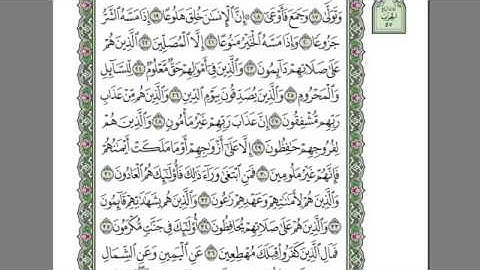 وَتَوَلَّىٰ ١٧ وَجَمَعَ فَأَوْعَىٰٓ ١٨ ۞ إِنَّ ٱلْإِنسَٰنَ خُلِقَ هَلُوعًا ١٩ إِذَا مَسَّهُ ٱلشَّرُّ
جَزُوعًا ٢٠ وَإِذَا مَسَّهُ ٱلْخَيْرُ مَنُوعًا ٢١ إِلَّا ٱلْمُصَلِّينَ ٢٢ ٱلَّذِينَ هُمْ
عَلَىٰ صَلَاتِهِمْ دَآئِمُونَ ٢٣ وَٱلَّذِينَ فِىٓ أَمْوَٰلِهِمْ حَقٌّ مَّعْلُومٌ ٢٤ لِّلسَّآئِلِ
وَٱلْمَحْرُومِ ٢٥ وَٱلَّذِينَ يُصَدِّقُونَ بِيَوْمِ ٱلدِّينِ ٢٦ وَٱلَّذِينَ هُم مِّنْ عَذَابِ
رَبِّهِم مُّشْفِقُونَ ٢٧ إِنَّ عَذَابَ رَبِّهِمْ غَيْرُ مَأْمُونٍ ٢٨ وَٱلَّذِينَ هُمْ
لِفُرُوجِهِمْ حَٰفِظُونَ ٢٩ إِلَّا عَلَىٰٓ أَزْوَٰجِهِمْ أَوْ مَا مَلَكَتْ أَيْمَٰنُهُمْ
فَإِنَّهُمْ غَيْرُ مَلُومِينَ ٣٠ فَمَنِ ٱبْتَغَىٰ وَرَآءَ ذَٰلِكَ فَأُو۟لَٰٓئِكَ هُمُ ٱلْعَادُونَ ٣١
وَٱلَّذِينَ هُمْ لِأَمَٰنَٰتِهِمْ وَعَهْدِهِمْ رَٰعُونَ ٣٢ وَٱلَّذِينَ هُم بِشَهَٰدَٰتِهِمْ قَآئِمُونَ
٣٣ وَٱلَّذِينَ هُمْ عَلَىٰ صَلَاتِهِمْ يُحَافِظُونَ ٣٤ أُو۟لَٰٓئِكَ فِى جَنَّٰتٍ مُّكْرَمُونَ ٣٥
فَمَالِ ٱلَّذِينَ كَفَرُوا۟ قِبَلَكَ مُهْطِعِينَ ٣٦ عَنِ ٱلْيَمِينِ وَعَنِ ٱلشِّمَالِ
الحزب
٥٧